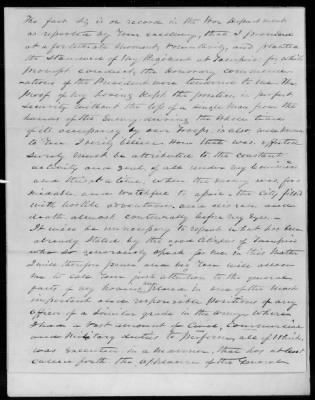 The fact Sy is on record in the War Department
as reported by Your excellency, that I promised
at a fortunate moment, Voluntarily, and planted
the Standard of my Regiment at Tampico, for which
prompt conduct, the honorary commend-
ations of the President were tendered to me. The
proof of my having kept the position in perfect
security without the loss of a single man from the
hands of the Enemy during the whole time
of its occupancy by our Troops, is also, well known
to You. I verily believe that was effected
surely must be attributed to the constant
activity and zeal, of all under my Command
and this at a time, when the enemy were for-
midable and watchful to spare, the City filled
with hostile adventurers, and disease and
death almost continually before my Eyes.
It will be unnecessary to repeat what has been
already stated by the good Citizens of Tampico
who so generously speak for me in this Matter
I will therefore and You will allow
me to call Your just attention to the general
parts of my having placed in one of the most
important and responsible Positions of any
officer of a similar grade in the army where
I had a vast amount of Civil, Commercial
and Military duties to perform, all of which
was executed in a Manner, that has at least
called forth the approval of the General